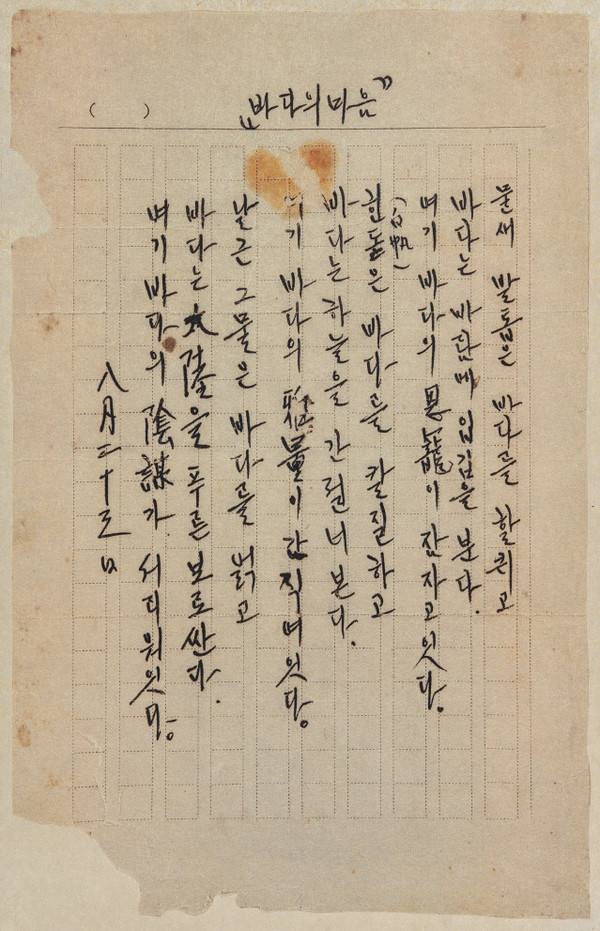 "바다의 마음"
( )
물새 발톱은 바다를 할퀴고
바다는 바람에 입김을 분다.
여기 바다의 恩寵이 잠자고잇다。
(白帆)
힌돛은 바다를 칼질하고
바다는 하늘을 간질너 본다.
여기 바다의 雅量이 간직여잇다。
날근 그물은 바다를 얽고
바다는 大陸을 푸른 보로 싼다.
여기 바다의 陰謀가 서리워잇다。
八月二十三日